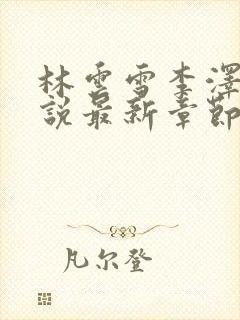 林雲雪李澤
說最新章節
凡尔登